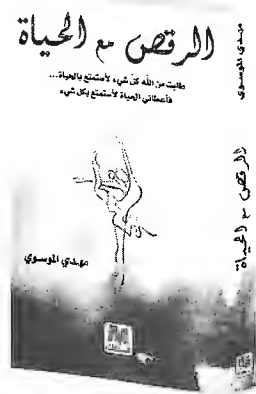 الرقص مع الحياة
طلبت من الله كل شيء لأستمتع بالحياة...
فأعطاني الحياة لأستمتع بكل شيء
مهدي الموسوي
مهدي الموسوي
الرقص مع الحياة